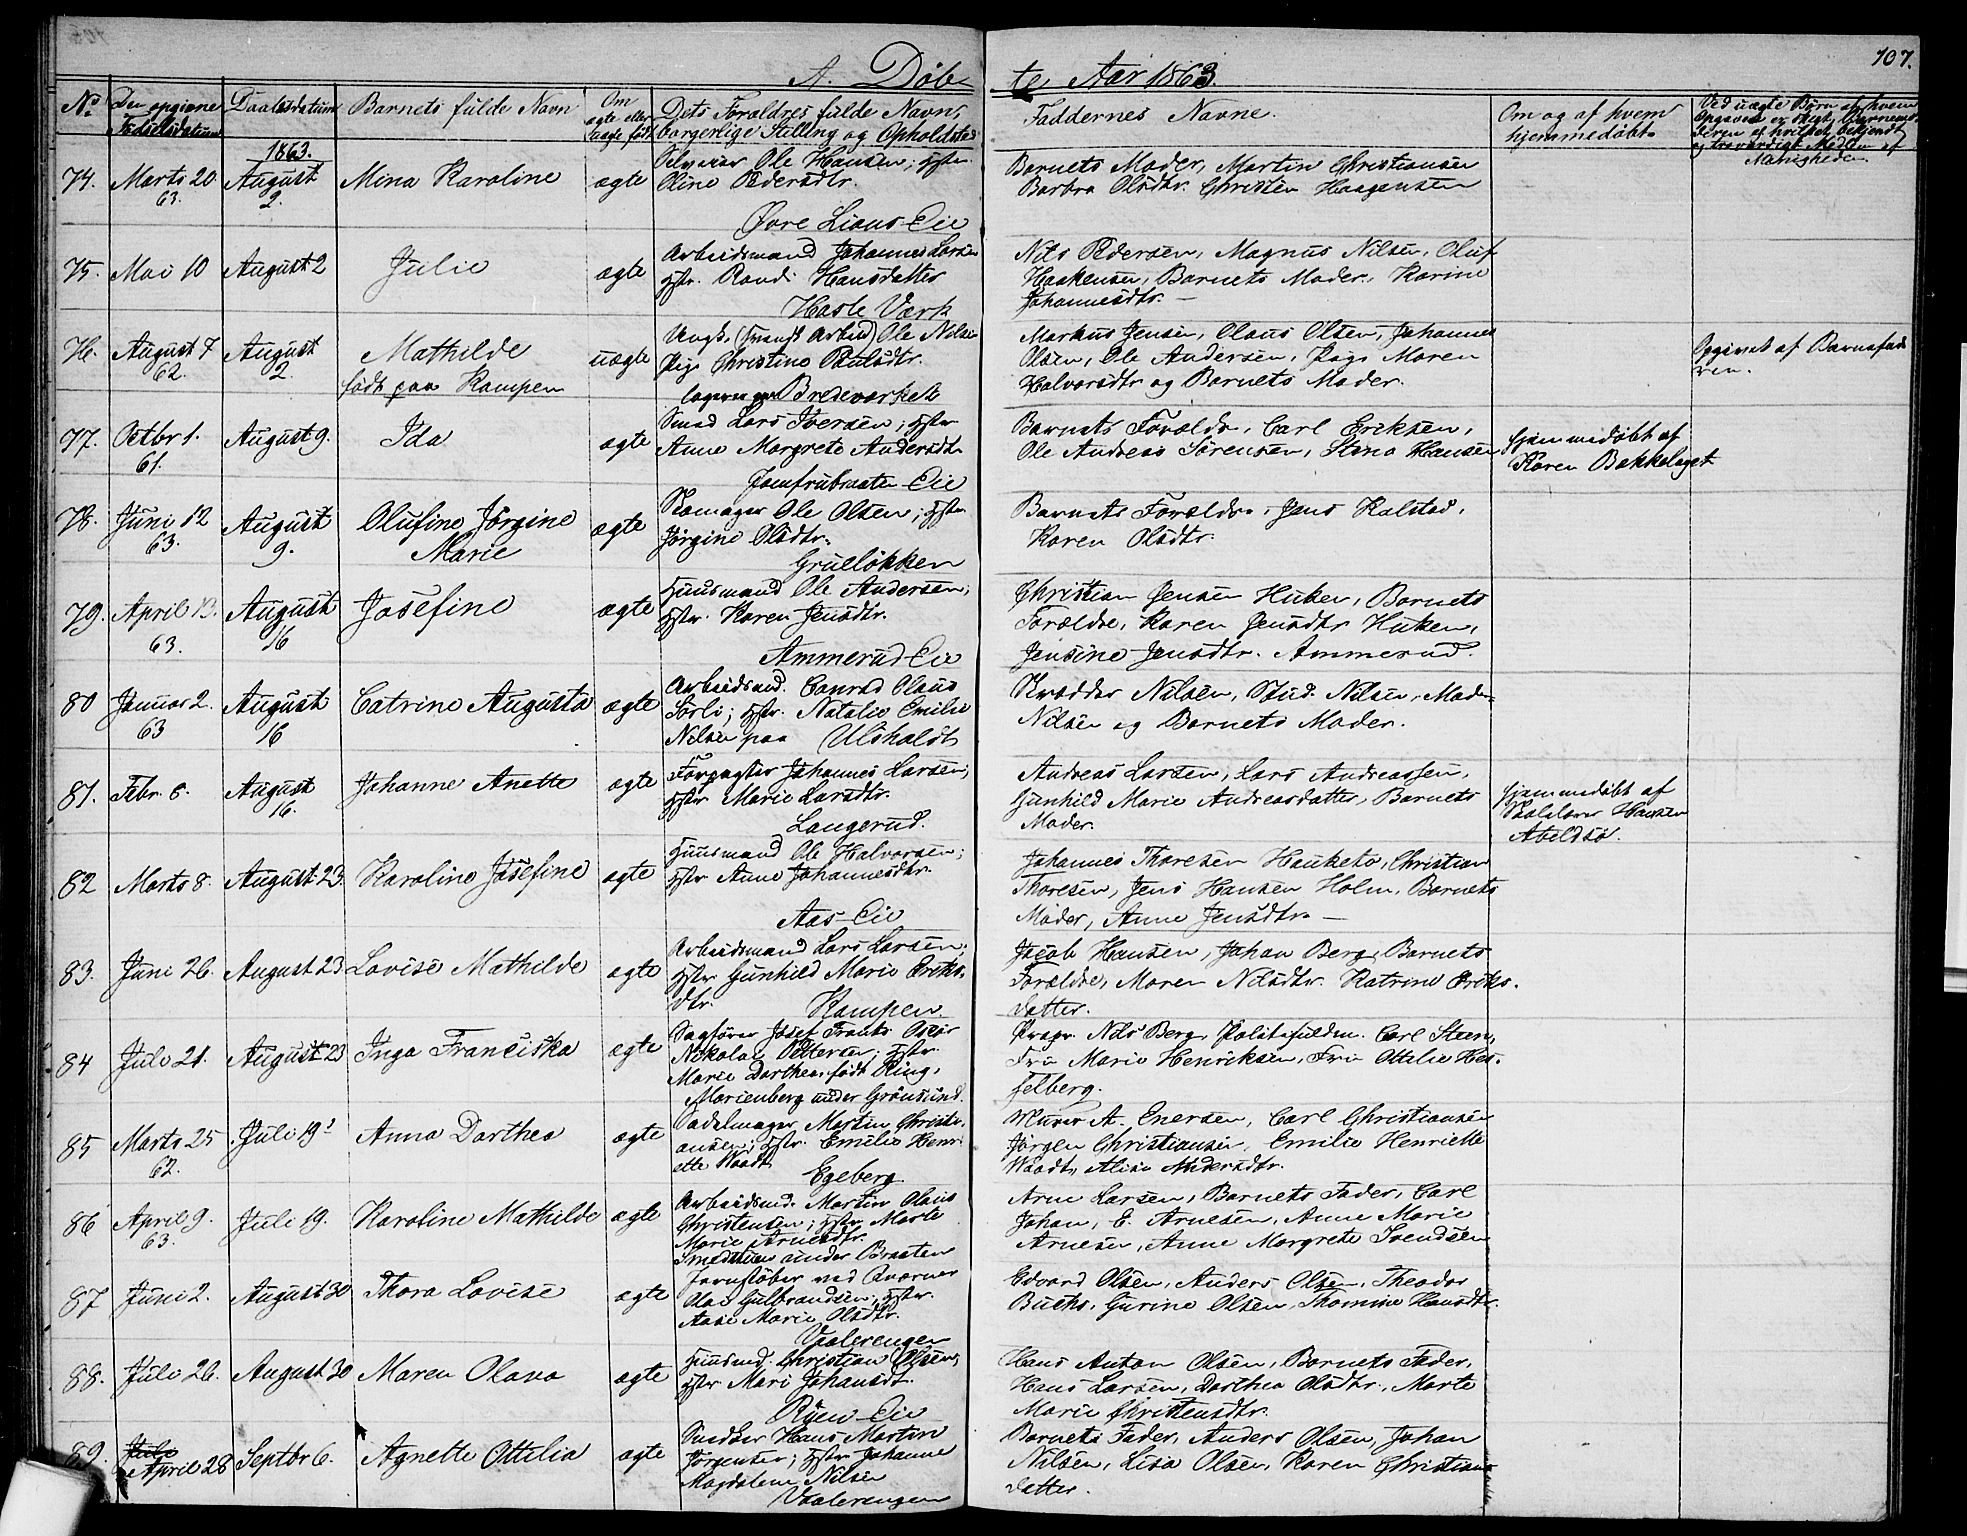 107.
A. Døb-
te, Aar 1863.
No
Den opgivne Fødselsdatum
Daabsdatum
Barnets fulde Navn
Om ægte eller uægte født
Dets Forældres fulde Navn, borgerlige Stilling og Opholdsted
Faddernes Navne.
Om og af hvem hjemmedøbt
1863.
74.
Marts 20
63.
August
2.
Mina Karoline
ægte
Ole Hansen; Hstr.
Oline Pedersdtr.
Øvre Lians-Eie
Barnets Moder, Martin Christiansen
Barbra Olsdtr. Christen Haagensen
75.
Mai 10
August 2
Julie
ægte
Arbeidsmand Johannes Larsen
Hstr. Randi Hansdatter
Hasle Værk
Nils Pedersen, Magnus Nilsen, Oluf
Haakensen, Barnets Moder, Karine
Johannesdtr. —
76.
August 7
62.
August
2.
Mathilde
født paa Kampen
uægte
Ungk. Ole Nilsen
Pige Christine Paulsdtr.
Markus Jensen, Olaus Olsen, Johannes
Olsen, Ole Andersen, Pige Maren
Halvorsdtr og Barnets Moder.
Opgivet af Barnefaderen.
77.
Octbr 1.
61.
August 9.
Ida
ægte
Smed Lars Iversen; Hstr
Anne Margrete Andersdtr
Jomfrubraaten-Eie
Barnets Forældre, Carl Eriksen,
Ole Andreas Sørensen, Stena Hansen
Hjemmedøbt af
Karen Bækkelaget
78.
Juni 12
63.
August
9.
Olufine Jørgine
Marie
ægte
Skomager Ole Olsen; Hstr.
Jørgine Olsdtr.
Grueløkken
Barnets Forældre, Jens Kalstad,
Karen Olsdtr.
79.
April 13.
63.
August
16
Josefine
ægte
Huusmand Ole Andersen;
Hstr. Karen Jensdtr.
Ammerud-Eie
Christian Jensen Huken, Barnets
Forældre, Karen Jensdtr Huken,
Jensine Jensdtr. Ammerud.
80
Januar 2.
63
August
16
Catrine Augusta
ægte
Arbeidsmd. Conrad Olaus
Sørli; Hstr. Natalie Emilie
Nilsen paa Ulsholdt
Nilsen, Stud. Nilsen, Mad.
Nilsen og Barnets Moder.
81.
Febr. 8.
August
16.
Johanne Anette
ægte
Forpagter Johannes Larsen;
Hstr Marie Larsdtr.
Langerud.
Andreas Larsen, Lars Andreassen,
Gunhild Marie Andreasdatter, Barnets
Moder.
Hjemmedøbt af
Skolelærer Hansen
Abildsø.
82
Marts 8.
August 23.
Karoline Josefine
ægte
Huusmand Ole Halvorsen;
Hstr Anne Johannesdtr.
Aas-Eie
Johannes Thoresen Hauketo, Christian
Thoresen, Jens Hansen Holm, Barnets
Moder, Anne Jensdtr. —
83.
Juni 26.
August 23
Lovise Mathilde
ægte
Arbeidsmand Lars Larsen,
Hstr Gunhild Marie Eriks-
dtr.
Kampen.
Jacob Hansen, Johan Berg, Barnets
Forældre, Maren Nilsdtr. Katrine Eriks-
datter.
84
Juli 21.
August 23
Inga Franciska
ægte
Sagfører Josef Frants Oscar
Nikolai Pettersen; Hstr.
Marie Dorthea, født Ring,
Marienberg under Grønsund.
Nils Berg, Politifuldm. Carl Steen,
Fru Marie Henriksen, Fru Ottilie Hes-
selberg.
85
Marts 25
62.
Juli 19
Anna Dorthea
ægte
Sadelmager Martin Christi-
ansen; Hstr. Emilie Henri-
ette Waadt
Egeberg.
Murer A. Enersen, Carl Christiansen
Jørgen Christiansen, Emilie Henriette
Waadt, Alise Andersdtr.
86
April 9.
63.
Juli 19.
Karoline Mathilde
ægte
Arbeidsmd. Martin Olaus
Christensen; Hstr Marte
Marie Arnesdtr.
under Braaten
Arne Larsen, Barnets Fader, Carl
Johan, E. Arnesen, Anne Marie
Arnesen, Anne Margrete Svendsen
87
Juni 2.
August 30
Thora Lovise
ægte
Jernstøber ved Kværner
Olai Gulbrandsen; Hstr.
Aase Marie Olsdtr.
Vaalerengen
Edvard Olsen, Anders Olsen, Theodor
Buchs, Gurine Olsen, Thomine Hansdtr.
88.
Juli 26.
August 30
Maren Olava
ægte
Huusmd. Christian Olsen,
Hstr Mari Johansdt.
Ryen-Eie
Hans Anton Olsen, Barnets Fader,
Hans Larsen, Dorthea Olsdtr., Marte
Marie Christensdtr.
89.
Juli
April 28
Septbr 6.
Agnette Ottilia
ægte
Snedker Hans Martin
Jørgensen; Hstr Johanne
Magdalene Nilsen
Vaalerengen
Barnets Fader, Anders Olsen, Johan
Nilsen, Lisa Olsen, Karen Christians-
datter.